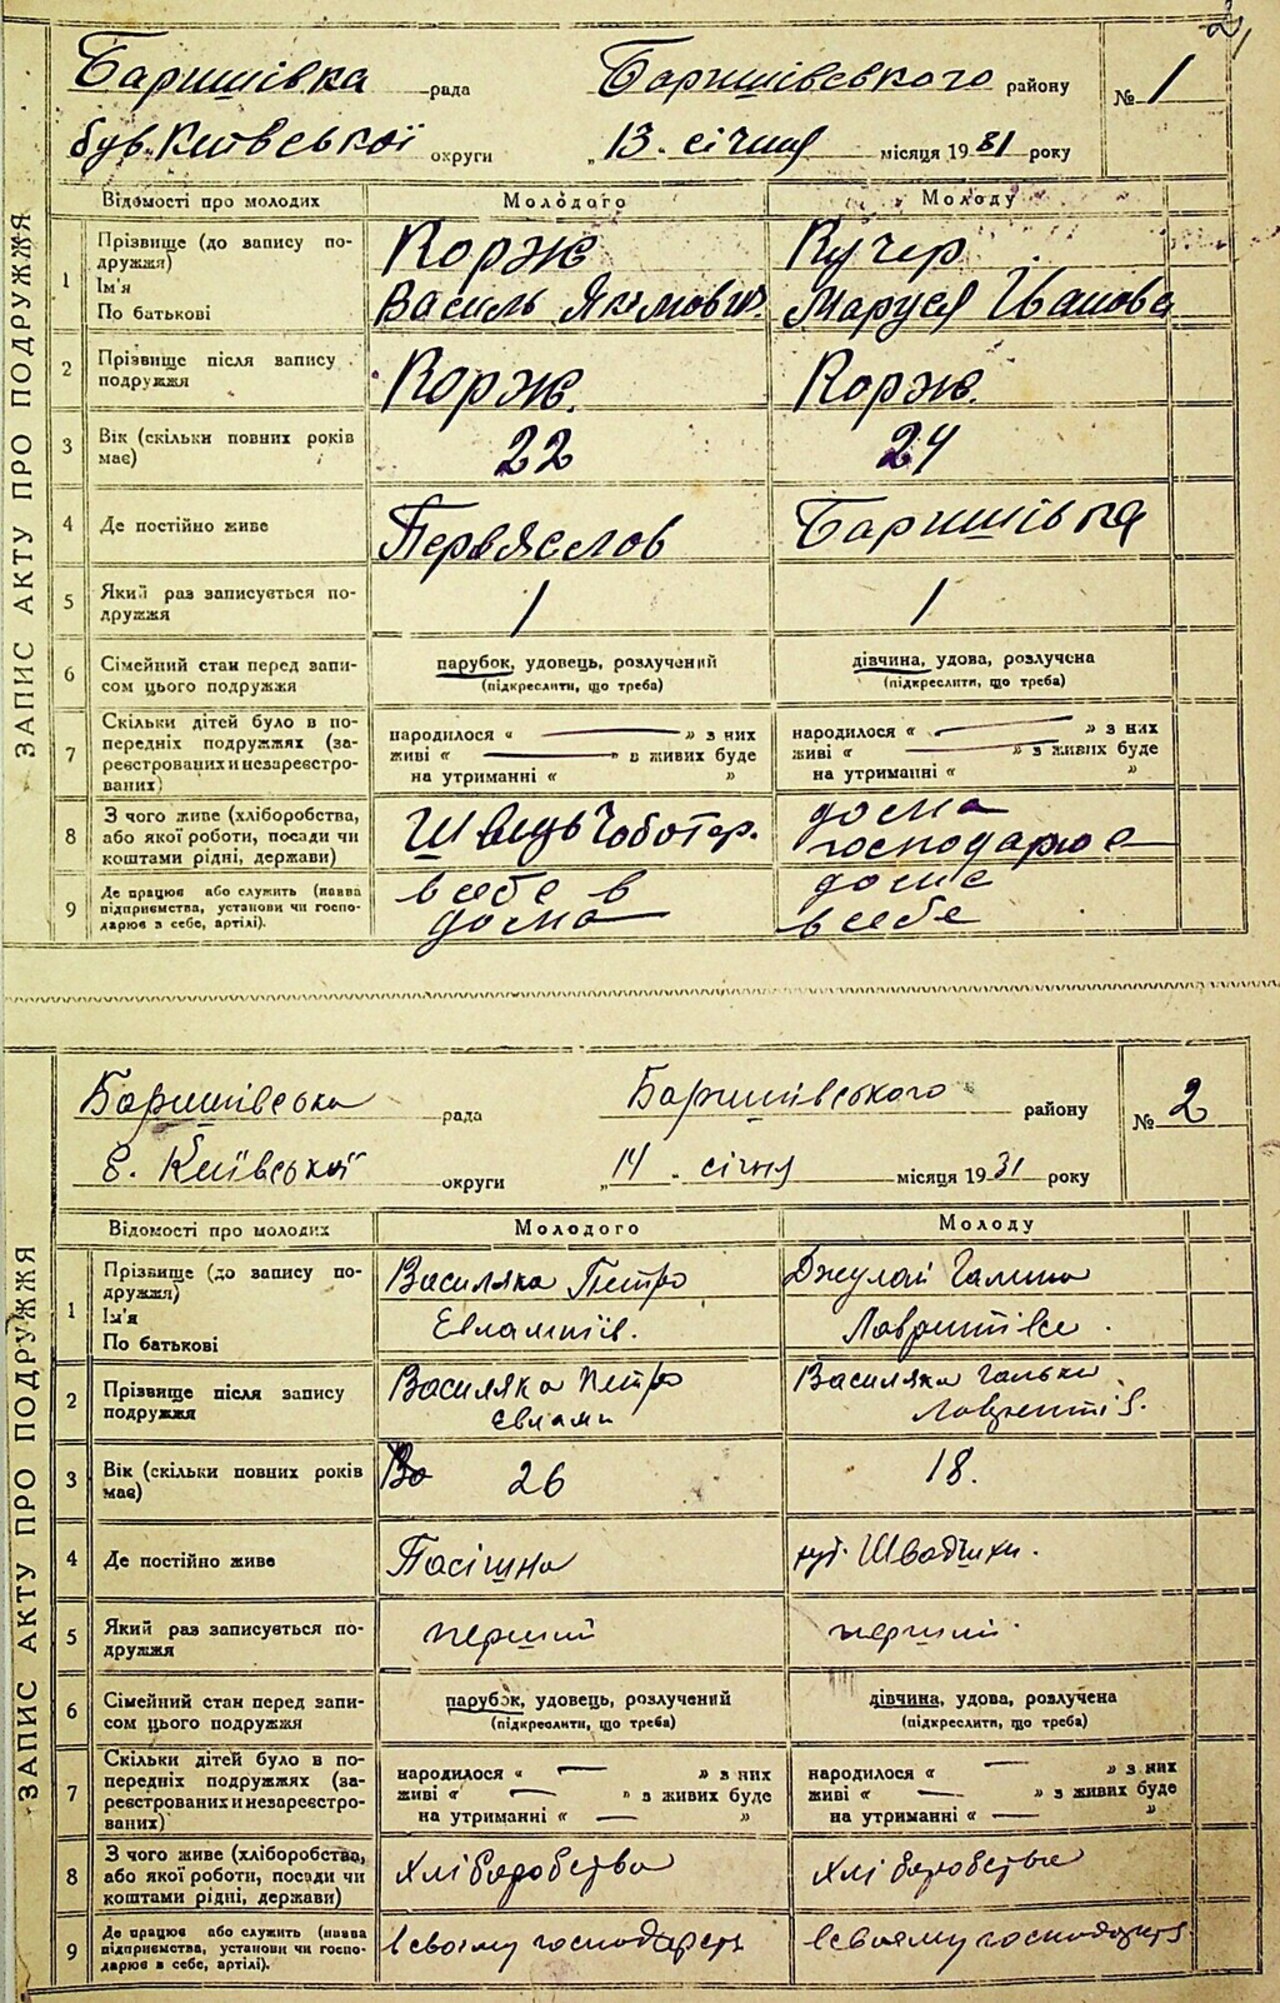 2
ЗАПИС АКТУ ПРО ПОДРУЖЖЯ
Баришівка рада Баришівського району № 1
був. Київської округи „13. січня місяця 1931 року
Відомості про молодих Молодого Молоду
1 Прізвище (до запису по- Корж Кучер
дружжя)
Ім'я Василь Якимович Маруся Іванова
По батькові
2 Прізвище після запису Корж. Корж.
подружжя
3 Вік (скільки повних років 22 24
має)
4 Де постійно живе Первяслов Баришівка
5 Який раз записується по- 1 1
дружжя
6 Сімейний стан перед запи- парубок, удовець, розлучений дівчина, удова, розлучена
сом цього подружжя (підкреслити, що треба) (підкреслити, що треба)
7 Скільки дітей було в по- народилося „ — » з них народилося „ — » з них
передніх подружжях (за- живі „ — » в живих буде живі „ — » з живих буде
реєстрованих и незареєстро- на утриманні „ » на утриманні „ »
ваних)
8 З чого живе (хліборобства, Швець Чоботар. дома
або якої роботи, посади чи господарює
коштами рідні, держави)
9 Де працює або служить (назва в себе в доме
підприємства, установи чи госпо- дома в себе
дарює в себе, артілі).
ЗАПИС АКТУ ПРО ПОДРУЖЖЯ
Баришівська рада Баришівського району № 2
б. Київської округи „14 " січня місяця 1931 року
Відомості про молодих Молодого Молоду
1 Прізвище (до запису по- Василяка Петро Джулай Галина
дружжя)
Ім'я Евлампіїв. Лаврентівна.
По батькові
2 Прізвище після запису Василяка Петро Василяка Галька
подружжя Євламп Лаврентіїв.
3 Вік (скільки повних років 26 18.
має)
4 Де постійно живе Пасішна хут. Швачихи.
5 Який раз записується по- перший перший
дружжя
6 Сімейний стан перед запи- парубок, удовець, розлучений дівчина, удова, розлучена
сом цього подружжя (підкреслити, що треба) (підкреслити, що треба)
7 Скільки дітей було в по- народилося „ — » з них народилося „ — » з них
передніх подружжях (за- живі „ — » з живих буде живі „ — » з живих буде
реєстрованих и незареєстро- на утриманні „ — » на утриманні „ — »
ваних)
8 З чого живе (хліборобства, хліборобства хліборобства
або якої роботи, посади чи
коштами рідні, держави)
9 Де працює або служить (назва в своєму господарств в своєму господарств
підприємства, установи чи госпо-
дарює в себе, артілі).